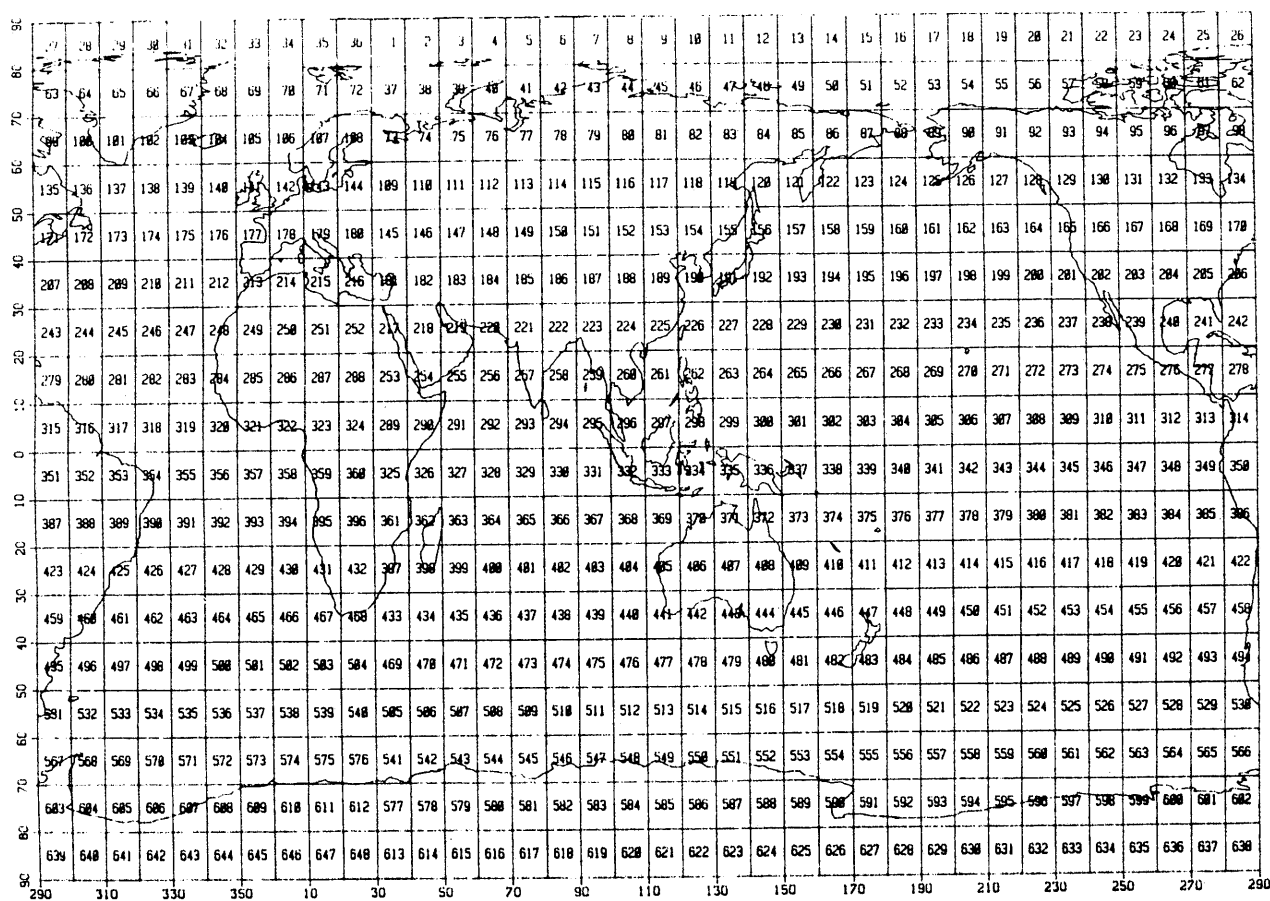 90
27 28 29 30 31 32 33 34 35 36 1 2 3 4 5 6 7 8 9 10 11 12 13 14 15 16 17 18 19 20 21 22 23 24 25 26
80
63 64 65 66 67 68 69 70 71 72 37 38 39 40 41 42 43 44 45 46 47 48 49 50 51 52 53 54 55 56 57 58 59 60 61 62
70
99 100 101 102 103 104 105 106 107 108 73 74 75 76 77 78 79 80 81 82 83 84 85 86 87 88 89 90 91 92 93 94 95 96 97 98
60
135 136 137 138 139 140 141 142 143 144 109 110 111 112 113 114 115 116 117 118 119 120 121 122 123 124 125 126 127 128 129 130 131 132 133 134
50
171 172 173 174 175 176 177 178 179 180 145 146 147 148 149 150 151 152 153 154 155 156 157 158 159 160 161 162 163 164 165 166 167 168 169 170
40
207 208 209 210 211 212 213 214 215 216 181 182 183 184 185 186 187 188 189 190 191 192 193 194 195 196 197 198 199 200 201 202 203 204 205 206
30
243 244 245 246 247 248 249 250 251 252 217 218 219 220 221 222 223 224 225 226 227 228 229 230 231 232 233 234 235 236 237 238 239 240 241 242
20
279 280 281 282 283 284 285 286 287 288 253 254 255 256 257 258 259 260 261 262 263 264 265 266 267 268 269 270 271 272 273 274 275 276 277 278
10
315 316 317 318 319 320 321 322 323 324 289 290 291 292 293 294 295 296 297 298 299 300 301 302 303 304 305 306 307 308 309 310 311 312 313 314
0
351 352 353 354 355 356 357 358 359 360 325 326 327 328 329 330 331 332 333 334 335 336 337 338 339 340 341 342 343 344 345 346 347 348 349 350
10
387 388 389 390 391 392 393 394 395 396 361 362 363 364 365 366 367 368 369 370 371 372 373 374 375 376 377 378 379 380 381 382 383 384 385 386
20
423 424 425 426 427 428 429 430 431 432 397 398 399 400 401 402 403 404 405 406 407 408 409 410 411 412 413 414 415 416 417 418 419 420 421 422
30
459 460 461 462 463 464 465 466 467 468 433 434 435 436 437 438 439 440 441 442 443 444 445 446 447 448 449 450 451 452 453 454 455 456 457 458
40
495 496 497 498 499 500 501 502 503 504 469 470 471 472 473 474 475 476 477 478 479 480 481 482 483 484 485 486 487 488 489 490 491 492 493 494
50
531 532 533 534 535 536 537 538 539 540 505 506 507 508 509 510 511 512 513 514 515 516 517 518 519 520 521 522 523 524 525 526 527 528 529 530
60
567 568 569 570 571 572 573 574 575 576 541 542 543 544 545 546 547 548 549 550 551 552 553 554 555 556 557 558 559 560 561 562 563 564 565 566
70
603 604 605 606 607 608 609 610 611 612 577 578 579 580 581 582 583 584 585 586 587 588 589 590 591 592 593 594 595 596 597 598 599 600 601 602
80
639 640 641 642 643 644 645 646 647 648 613 614 615 616 617 618 619 620 621 622 623 624 625 626 627 628 629 630 631 632 633 634 635 636 637 638
90
290 310 330 350 10 30 50 70 90 110 130 150 170 190 210 230 250 270 290